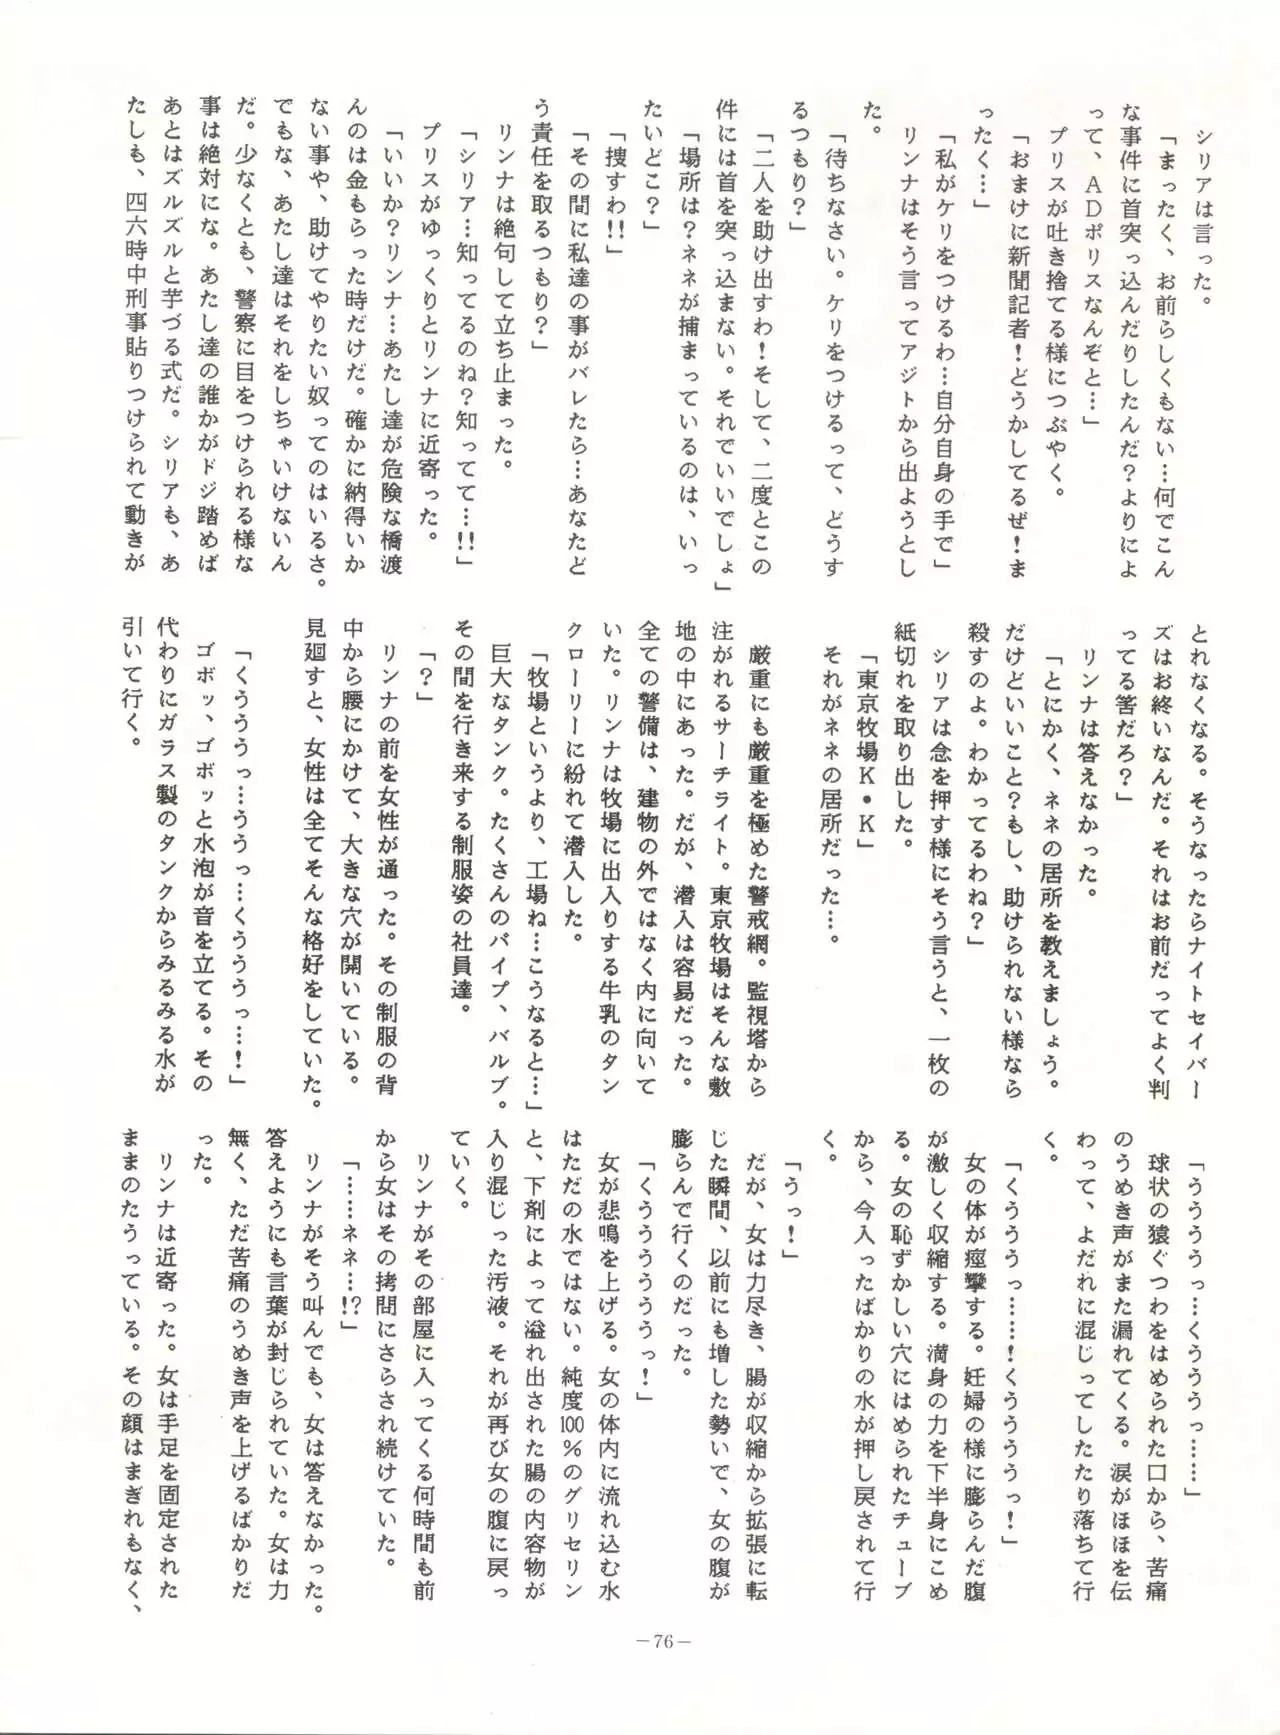 シリアは言った。
「まったく、お前らしくもない…何でこん
な事件に首突っ込んだりしたんだ？よりによ
って、ADポリスなんぞと…」
プリスが吐き捨てる様につぶやく。
「おまけに新聞記者！どうかしてるぜ！ま
ったく…」
「私がケリをつけるわ…自分自身の手で」
リンナはそう言ってアジトから出ようとし
た。
「待ちなさい。ケリをつけるって、どうす
るつもり？」
「二人を助け出すわ！そして、二度とこの
件には首を突っ込まない。それでいいでしょ」
「場所は？ネネが捕まっているのは、いっ
たいどこ？」
「捜すわ!!」
「その間に私達の事がバレたら…あなたど
う責任を取るつもり？」
リンナは絶句して立ち止まった。
「シリア…知ってるのね？知ってて…!!」
プリスがゆっくりとリンナに近寄った。
「いいか？リンナ…あたし達が危険な橋渡
んのは金もらった時だけだ。確かに納得いか
ない事や、助けてやりたい奴ってのはいるさ。
でもな、あたし達はそれをしちゃいけないん
だ。少なくとも、警察に目をつけられる様な
事は絶対にな。あたし達の誰かがドジ踏めば
あとはズルズルと芋づる式だ。シリアも、あ
たしも、四六時中刑事貼りつけられて動きが
とれなくなる。そうなったらナイトセイバー
ズはお終いなんだ。それはお前だってよく判
ってる筈だろ？」
リンナは答えなかった。
「とにかく、ネネの居所を教えましょう。
だけどいいこと？もし、助けられない様なら
殺すのよ。わかってるわね？」
シリアは念を押す様にそう言うと、一枚の
紙切れを取り出した。
「東京牧場K・K」
それがネネの居所だった…。
厳重にも厳重を極めた警戒網。監視塔から
注がれるサーチライト。東京牧場はそんな敷
地の中にあった。だが、潜入は容易だった。
全ての警備は、建物の外ではなく内に向いて
いた。リンナは牧場に出入りする牛乳のタン
クローリーに紛れて潜入した。
「牧場というより、工場ね…こうなると…」
巨大なタンク。たくさんのパイプ、バルブ。
その間を行き来する制服姿の社員達。
「？」
リンナの前を女性が通った。その制服の背
中から腰にかけて、大きな穴が開いている。
見廻すと、女性は全てそんな格好をしていた。
「くううっ…ううっ…くううっ…！」
ゴボッ、ゴボッと水泡が音を立てる。その
代わりにガラス製のタンクからみるみる水が
引いて行く。
「うううっ…くううっ……」
球状の猿ぐつわをはめられた口から、苦痛
のうめき声がまた漏れてくる。涙がほほを伝
わって、よだれに混じってしたたり落ちて行
く。
「くううっ……！くうううっ！」
女の体が痙攣する。妊婦の様に膨らんだ腹
が激しく収縮する。満身の力を下半身にこめ
る。女の恥ずかしい穴にはめられたチューブ
から、今入ったばかりの水が押し戻されて行
く。
「うっ！」
だが、女は力尽き、腸が収縮から拡張に転
じた瞬間、以前にも増した勢いで、女の腹が
膨らんで行くのだった。
「くうううううっ！」
女が悲鳴を上げる。女の体内に流れ込む水
はただの水ではない。純度100％のグリセリン
と、下剤によって溢れ出された腸の内容物が
入り混じった汚液。それが再び女の腹に戻っ
ていく。
リンナがその部屋に入ってくる何時間も前
から女はその拷問にさらされ続けていた。
「……ネネ…!?」
リンナがそう叫んでも、女は答えなかった。
答えようにも言葉が封じられていた。女は力
無く、ただ苦痛のうめき声を上げるばかりだ
った。
リンナは近寄った。女は手足を固定された
ままのたうっている。その顔はまぎれもなく、
－76－